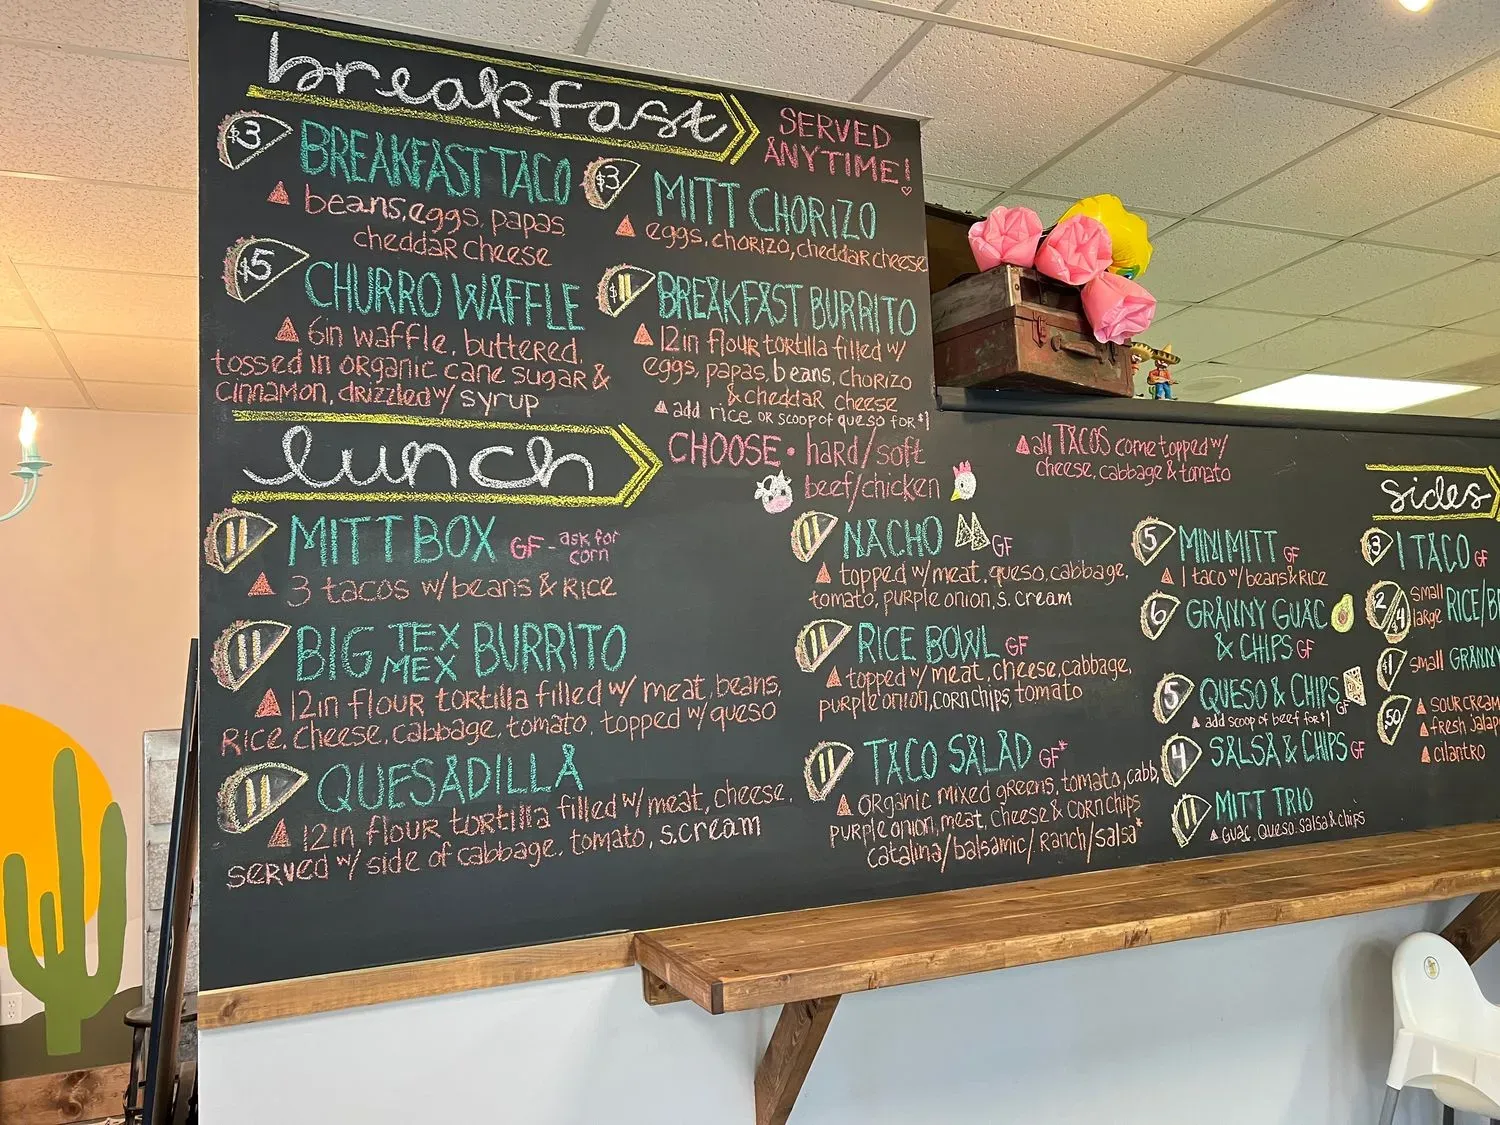 breakfast
SERVED
ANYTIME!
$3 BREAKFAST TACO
beans, eggs, papas
cheddar cheese
$3 MITT CHORIZO
eggs, chorizo, cheddar cheese
$5 CHURRO WAFFLE
6in waffle, buttered,
tossed in organic cane sugar &
cinnamon, drizzled w/ syrup
$11 BREAKFAST BURRITO
12in flour tortilla filled w/
eggs, papas, beans, chorizo
& cheddar cheese
add rice or scoop of queso for $1
lunch
CHOOSE • hard/soft
beef/chicken
all TACOS come topped w/
cheese, cabbage & tomato
11 MITT BOX GF - ask for
corn
3 tacos w/beans & rice
11 BIG TEX MEX BURRITO
12in flour tortilla filled w/ meat, beans,
rice, cheese, cabbage, tomato, topped w/ queso
11 QUESADILLA
12in flour tortilla filled w/meat, cheese,
served w/ side of cabbage, tomato, s.cream
11 NACHO GF
topped w/meat, queso, cabbage,
tomato, purple onion, s. cream
11 RICE BOWL GF
topped w/meat, cheese, cabbage,
purple onion, corn chips, tomato
11 TACO SALAD GF*
organic mixed greens, tomato, cabb,
purple onion, meat, cheese & corn chips
catalina/balsamic/ranch/salsa*
5 MINI MITT GF
1 taco w/beans & rice
6 GRANNY GUAC
& CHIPS GF
5 QUESO & CHIPS GF
add scoop of beef for $1
4 SALSA & CHIPS GF
11 MITT TRIO
guac, queso, salsa & chips
sides
3 1 TACO GF
2 small
$4 large
RICE/B
$1 small GRANNY
50 sour cream
fresh jalap
cilantro